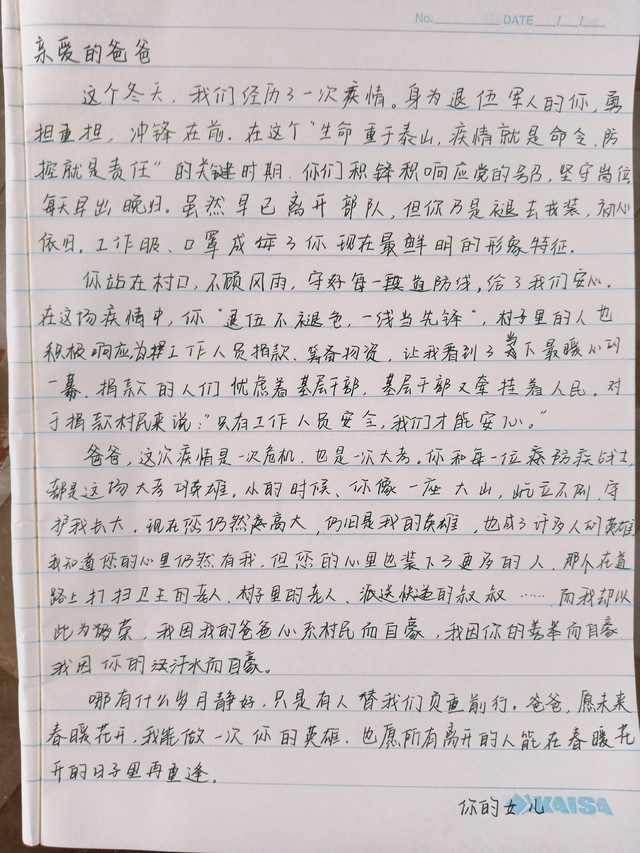 No. DATE / /
亲爱的爸爸
这个冬天，我们经历了一次疫情。身为退伍军人的你，勇
担重担，冲锋在前．在这个“生命重于泰山，疫情就是命令．防
控就是责任”的关键时期．你们积锋积响应党的号召，坚守岗位
每天早出晚归。虽然早已离开部队，但你乃是褪去戎装，初心
依旧．工作服、口罩成了你现在最鲜明的形象特征．
你站在村口，不顾风雨，守好每一道防线。给了我们安心．
在这场疫情中，你“退伍不褪色，一线当先锋”，村子里的人也
积极响应为工作人员捐款、筹备物资，让我看到了当下最暖心的
一幕．捐款的人们忧虑着基层干部．基层干部又牵挂着人民。对
于捐款村民来说：“只有工作人员安全，我们才能安心。”
爸爸，这次疫情是一次危机．也是一次大考。你和每一位防疫战士
都是这场大考的英雄．小的时候、你像一座大山，屹立不倒．守
护我长大．现在您仍然高大，仍旧是我的英雄，也成了许多人的英雄
我知道您的心里仍然有我．但您的心里也装下了更多的人，那个在道
路上打扫卫生的老人．村子里的老人、派送快递的叔叔……而我却以
此为荣，我因我的爸爸心系村民而自豪，我因你的善举而自豪
我因你的汗水而自豪。
哪有什么岁月静好．只是有人替我们负重前行．爸爸，愿未来
春暖花开．我能做一次你的英雄．也愿所有离开的人能在春暖花
开的日子里再重逢．
你的女儿
KAISA